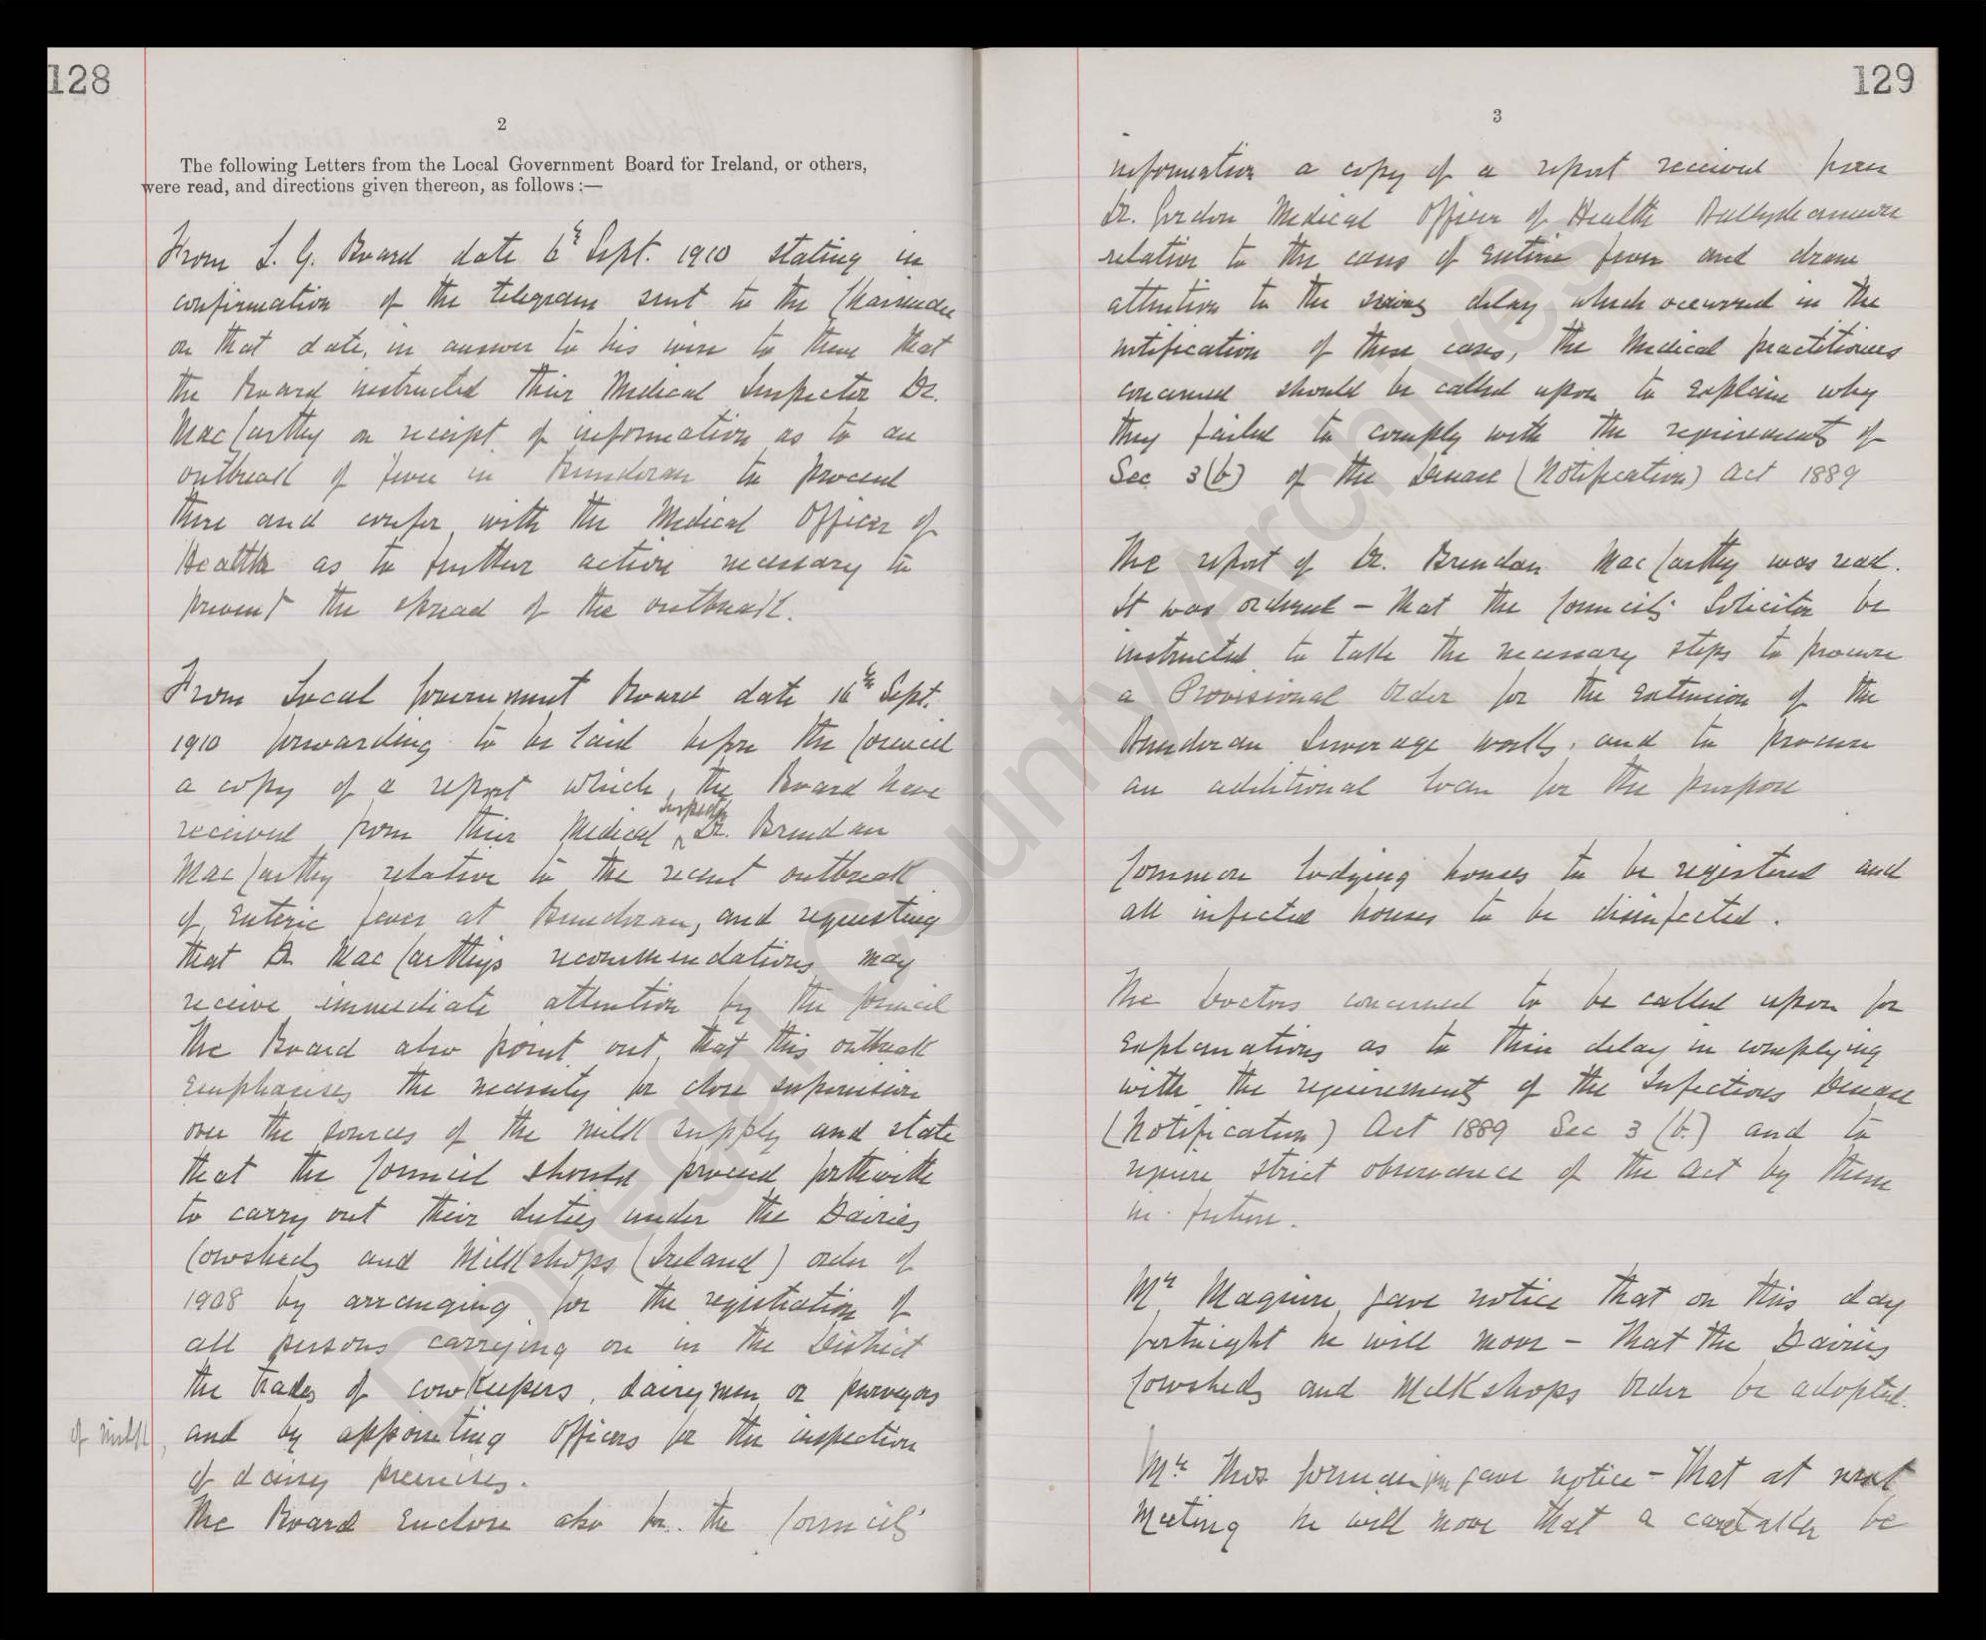 128
2
The following Letters from the Local Government Board for Ireland, or others,
were read, and directions given thereon, as follows :—
From L. G. Board date 6th Sept. 1910 stating in
confirmation of the telegram sent to the Chairman
on that date, in answer to his wire to them that
the Board instructed their Medical Inspector Dr.
MacCarthy on receipt of information as to an
outbreak of fever in Bundoran to proceed
there and confer with the Medical Officer of
Health as to further action necessary to
prevent the spread of the outbreak.
From Local Government Board date 16th Sept.
1910 forwarding to be laid before the Council
a copy of a report which the Board have
received from their Medical Inspector Dr. Brendan
MacCarthy relative to the recent outbreak
of Enteric fever at Bundoran, and requesting
that Dr MacCarthy's recommendations may
receive immediate attention by the Council
The Board also point out that this outbreak
emphasises the necessity for close supervision
over the sources of the milk supply and state
that the Council should proceed forthwith
to carry out their duties under the Dairies
Cowsheds and Milkshops (Ireland) order of
1908 by arranging for the registration of
all persons carrying on in the District
the trades of cowkeepers, dairymen or purveyors
of milk, and by appointing Officers for the inspection
of dairy premises.
The Board Enclose also for the Councils'
129
3
information a copy of a report received from
Dr. Gordon Medical Officer of Health Ballyshannon
relative to the cases of Enteric fever and draw
attention to the serious delay which occurred in the
notification of these cases, the Medical practitioners
concerned should be called upon to explain why
they failed to comply with the requirements of
Sec 3(b) of the Disease (Notification) Act 1889
The report of Dr. Brendan MacCarthy was read.
It was ordered – That the Councils' Solicitor be
instructed to take the necessary steps to procure
a Provisional Order for the extension of the
Bundoran Sewerage works, and to procure
an additional loan for the purpose
Common lodging houses to be registered and
all infected houses to be disinfected.
The Doctors concerned to be called upon for
Explanations as to their delay in complying
with the requirements of the Infectious Disease
(Notification) Act 1889 Sec 3 (b.) and to
require strict observance of the Act by them
in future.
Mr Maguire gave notice that on this day
fortnight he will move – That the Dairies
Cowsheds and Milkshops Order be adopted.
Mr Thos gave notice – That at next
Meeting he will move that a caretaker be
Donegal County Archives